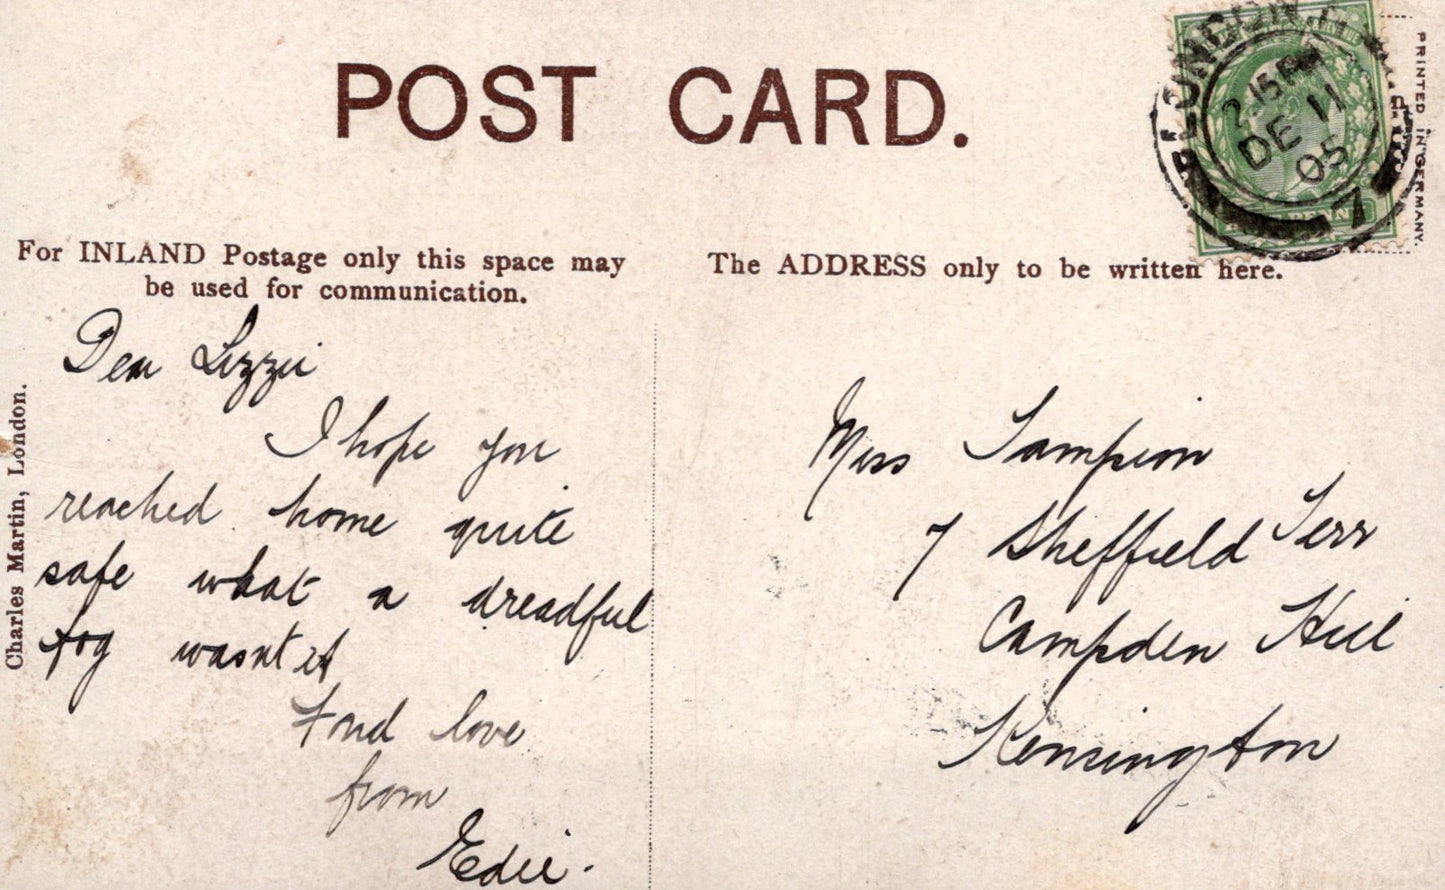 POST CARD.
For INLAND Postage only this space may
be used for communication.
The ADDRESS only to be written here.
PRINTED IN GERMANY.
LONDON
2.15 P
DE 11
05
7
Charles Martin, London.
Dear Lizzie
I hope you
reached home quite
safe what a dreadful
fog wasnt it
Fond love
from
Edie.
Miss Sampion
7 Sheffield Terr
Campden Hill
Kensington